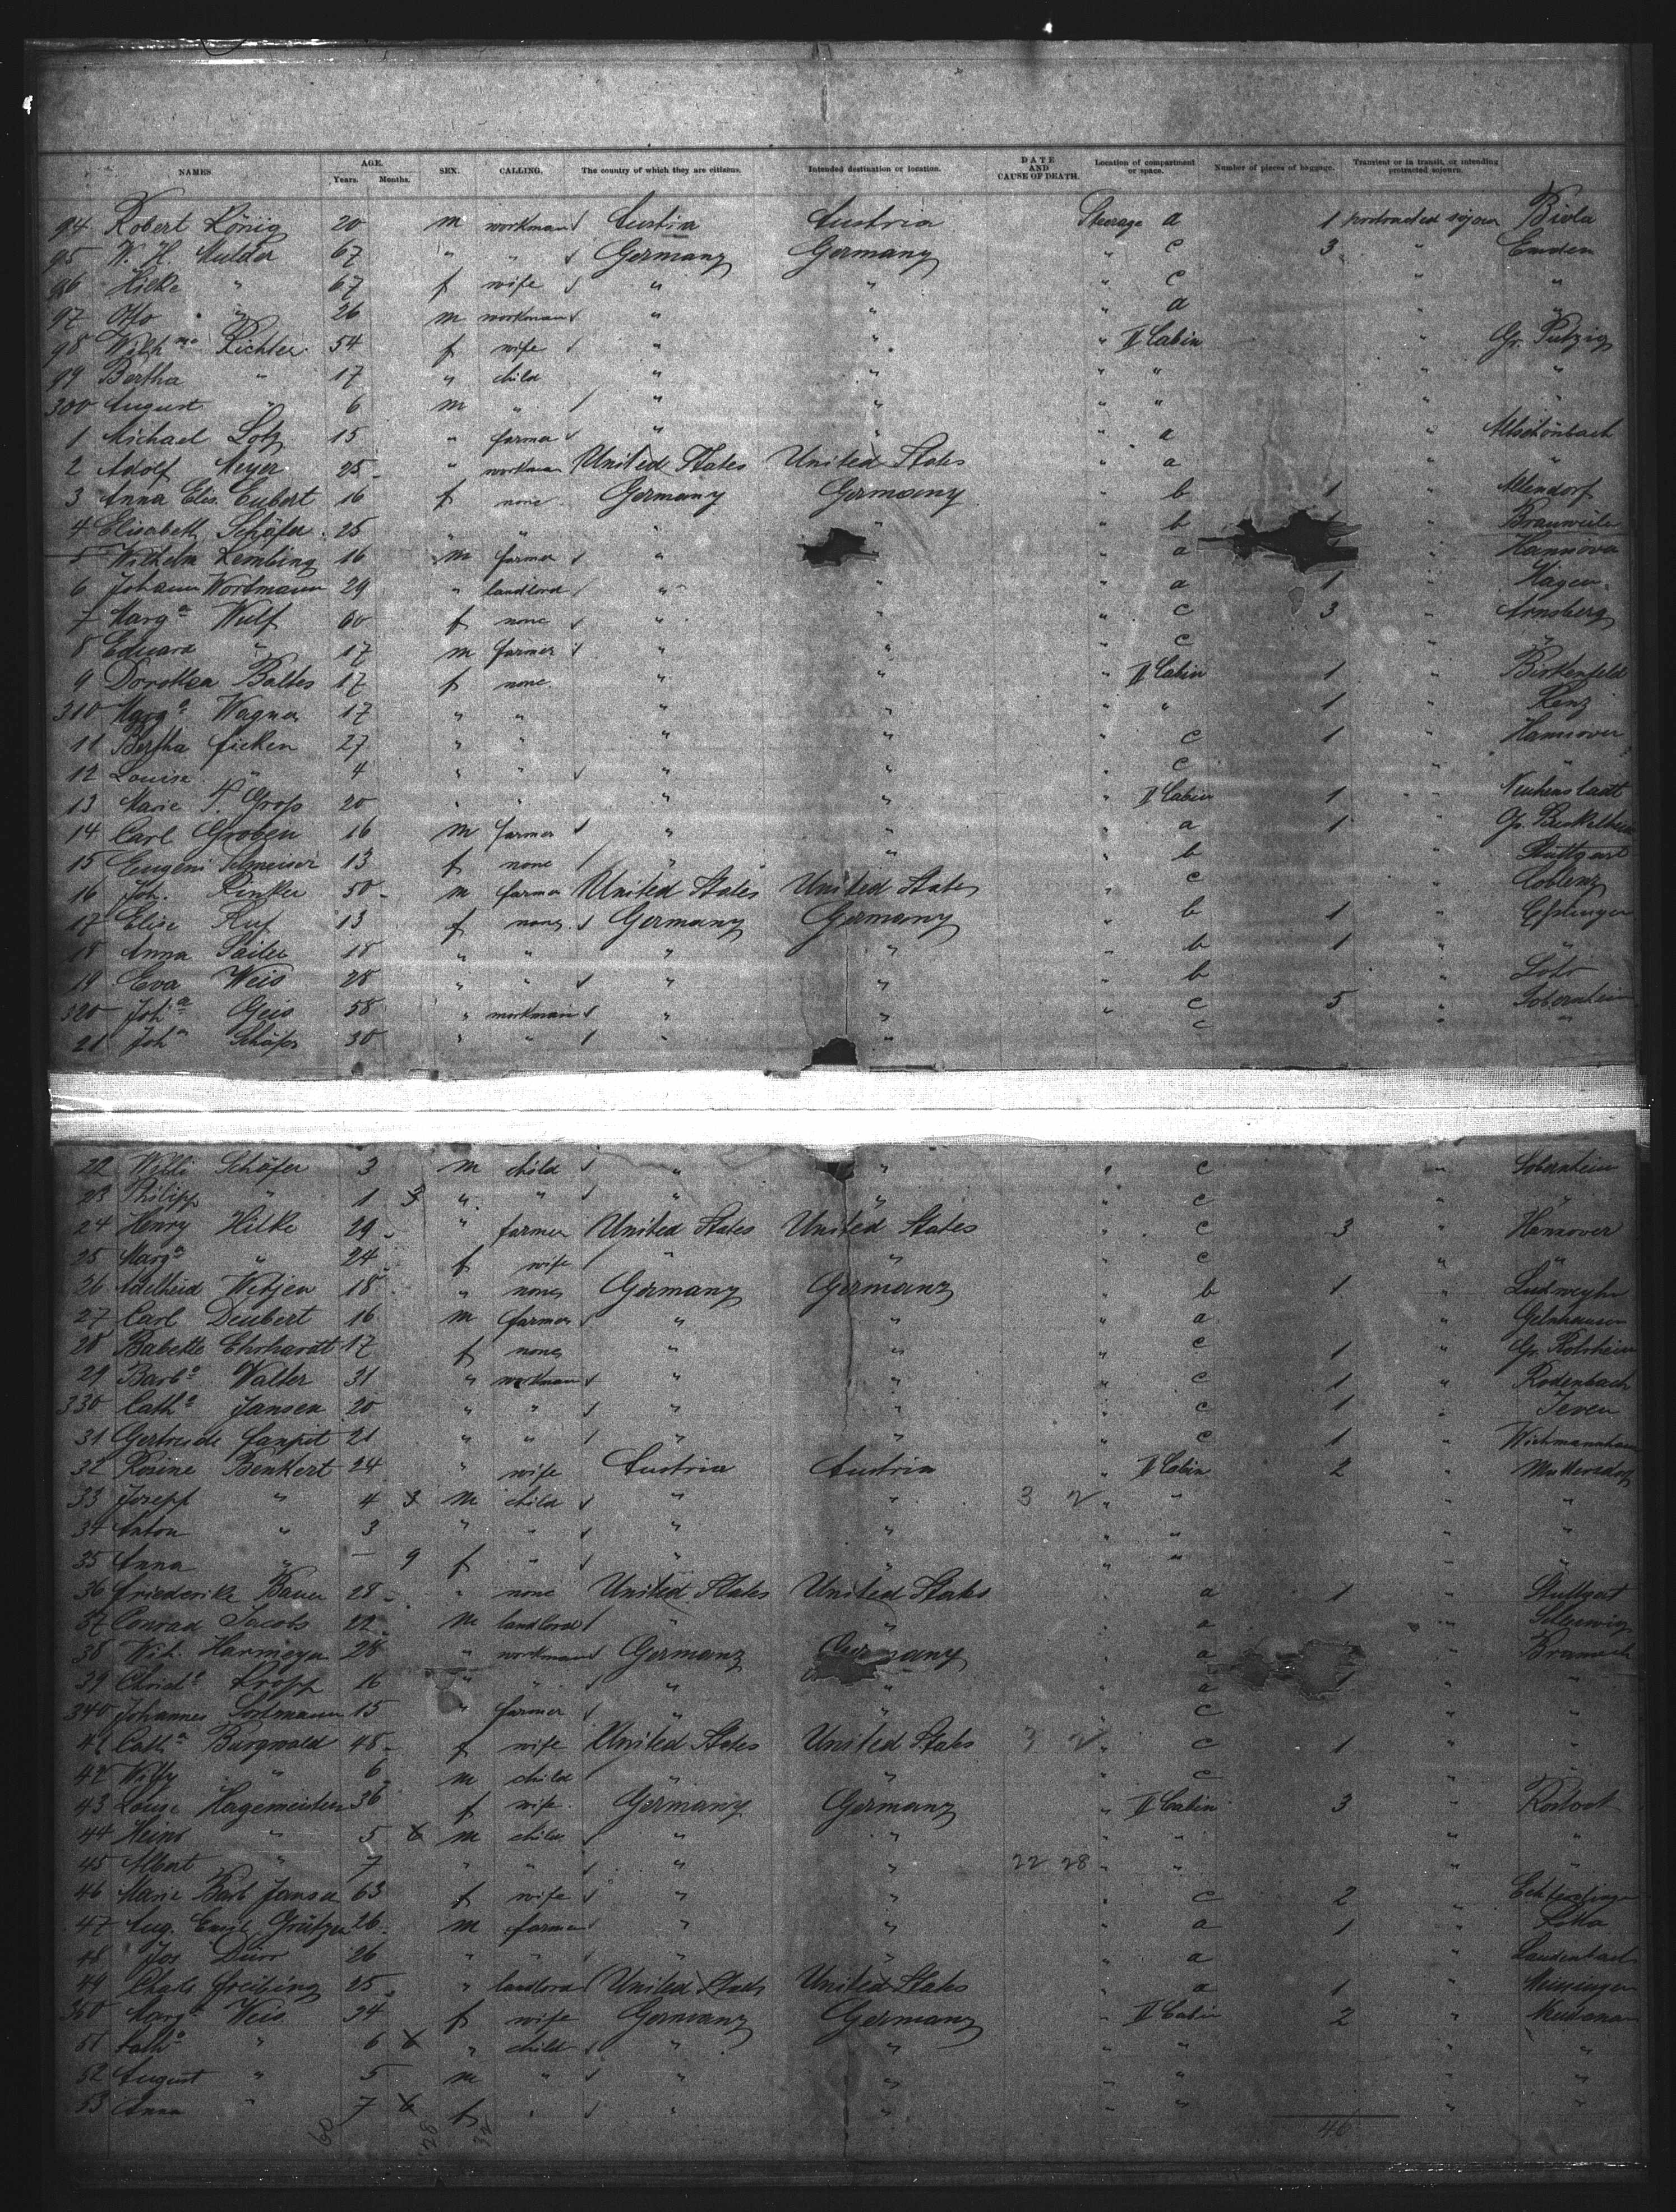 NAMES AGE. Years. Months. SEX. CALLING. The country of which they are citizens. Intended destination or location. DATE AND CAUSE OF DEATH. Location of compartment or space. Number of pieces of baggage. Transient or in transit, or intending protracted sojourn.
94 Robert König 20 m workman Austria Austria Steerage a 1 protracted sojourn
95 W. H. Mulder 67 " " Germany Germany " c 3 " Emden
96 Hilke " 67 f wife " " " c " "
97 Otto " 26 m workman " " " a " "
98 Wilh Richter 54 f wife " " " II Cabin " Gr.
99 Bertha " 17 " child " " " " " "
300 August " 6 m " " " " " " "
1 Michael Lotz 15 " farmer " " " a "
2 Adolf Meyer 25 " workman United States United States " a " "
3 Anna Elis. Eubert 16 f none Germany Germany " b 1 " Allendorf
4 Elisabeth Schäfer 25 " " " " " b "
5 Wilhelm Lembing 16 m farmer " a " Hannover
6 Johann Wortmann 29 " landlord " " " a 1 " Hagen
7 Marga Wulf 60 f none " " " c 3 " Arnsberg
8 Eduard " 17 m farmer " " " c " "
9 Dorothea Baltes 17 f none " " " II Cabin 1 " Birkenfeld
310 Marga Wagner 17 " " " " " " 1 "
11 Bertha Ficken 27 " " " " " c 1 " Hannover
12 Louise " 4 " " " " " c " "
13 Marie P. Gross 20 " " " " " II Cabin 1 "
14 Carl Groben 16 m farmer " " " a 1 "
15 Eugenie 13 f none " " " b " Stuttgart
16 Joh. 50 m farmer United States United States " c Coblenz
17 Elise Ruf 13 f none Germany Germany " b 1 " Esslingen
18 Anna Sailer 18 " " " " " b 1 " "
19 Eva Weis 28 " " " " " b " Lohr
320 Joha Geis 58 " workman " " " c 5 " Sobernheim
21 Joh Schäfer 30 " " " " c " "
22 Willi Schäfer 3 m child " " " c " Sobernheim
23 Philipp " 1 3 " " " " " c " "
24 Henry Hilke 29 " farmer United States United States " c 3 " Hannover
25 Marga " 24 f wife " " " c " "
26 Adelheid Wetjen 18 " none Germany Germany " b 1 "
27 Carl Deubert 16 m farmer " " " a " Gelnhausen
28 Babette Ehrhardt 17 f none " " " c 1 " Gr.
29 Barba Walter 31 " workman " " " c 1 " Rodenbach
330 Catha Jansen 20 " " " " " c 1 " Jever
31 Gertrude 21 " " " " " c 1 "
32 Rosine Benkert 24 " wife Austria Austria " II Cabin 2 "
33 Josepf " 4 3 m child " " 3 2 " " " "
34 Anton " 3 " " " " " " "
35 Anna " – 9 f " " " " " " "
36 Friederike Bauer 28 " none United States United States a 1 " Stuttgart
37 Conrad Jacobs 22 m landlord " " a " Schleswig
38 Wih. Harmeyer 28 " workman Germany Germany " a "
39 Christn Kropp 16 " " " " " a 1
340 Johannes Sortmann 15 " farmer " " " c " "
41 Catha Burgwald 48 f wife United States United States 3 2 " c 1 " "
42 Willy " 6 m child " " " c " "
43 Louise Hagemeister 36 f wife Germany Germany " II Cabin 3 " Rostock
44 Heinr " 5 6 m child " " " " " "
45 Albert " 7 " " " " 22 28 " " " "
46 Marie Barb Jansen 63 f wife " " " c 2 "
47 Aug. Emil Grützner 26 m farmer " " " a 1 "
48 Jos Dürr 26 " " " " " a " Laudenbach
49 Chals Freibing 25 " landlord United States United States " a 1 " Meiningen
350 Marg Weis 34 f wife Germany Germany " II Cabin 2 "
51 Catha " 6 6 " child " " " " " "
52 August " 5 m " " " " " " "
53 Anna " 7 6 f " " " " " " "
60 28 32 46